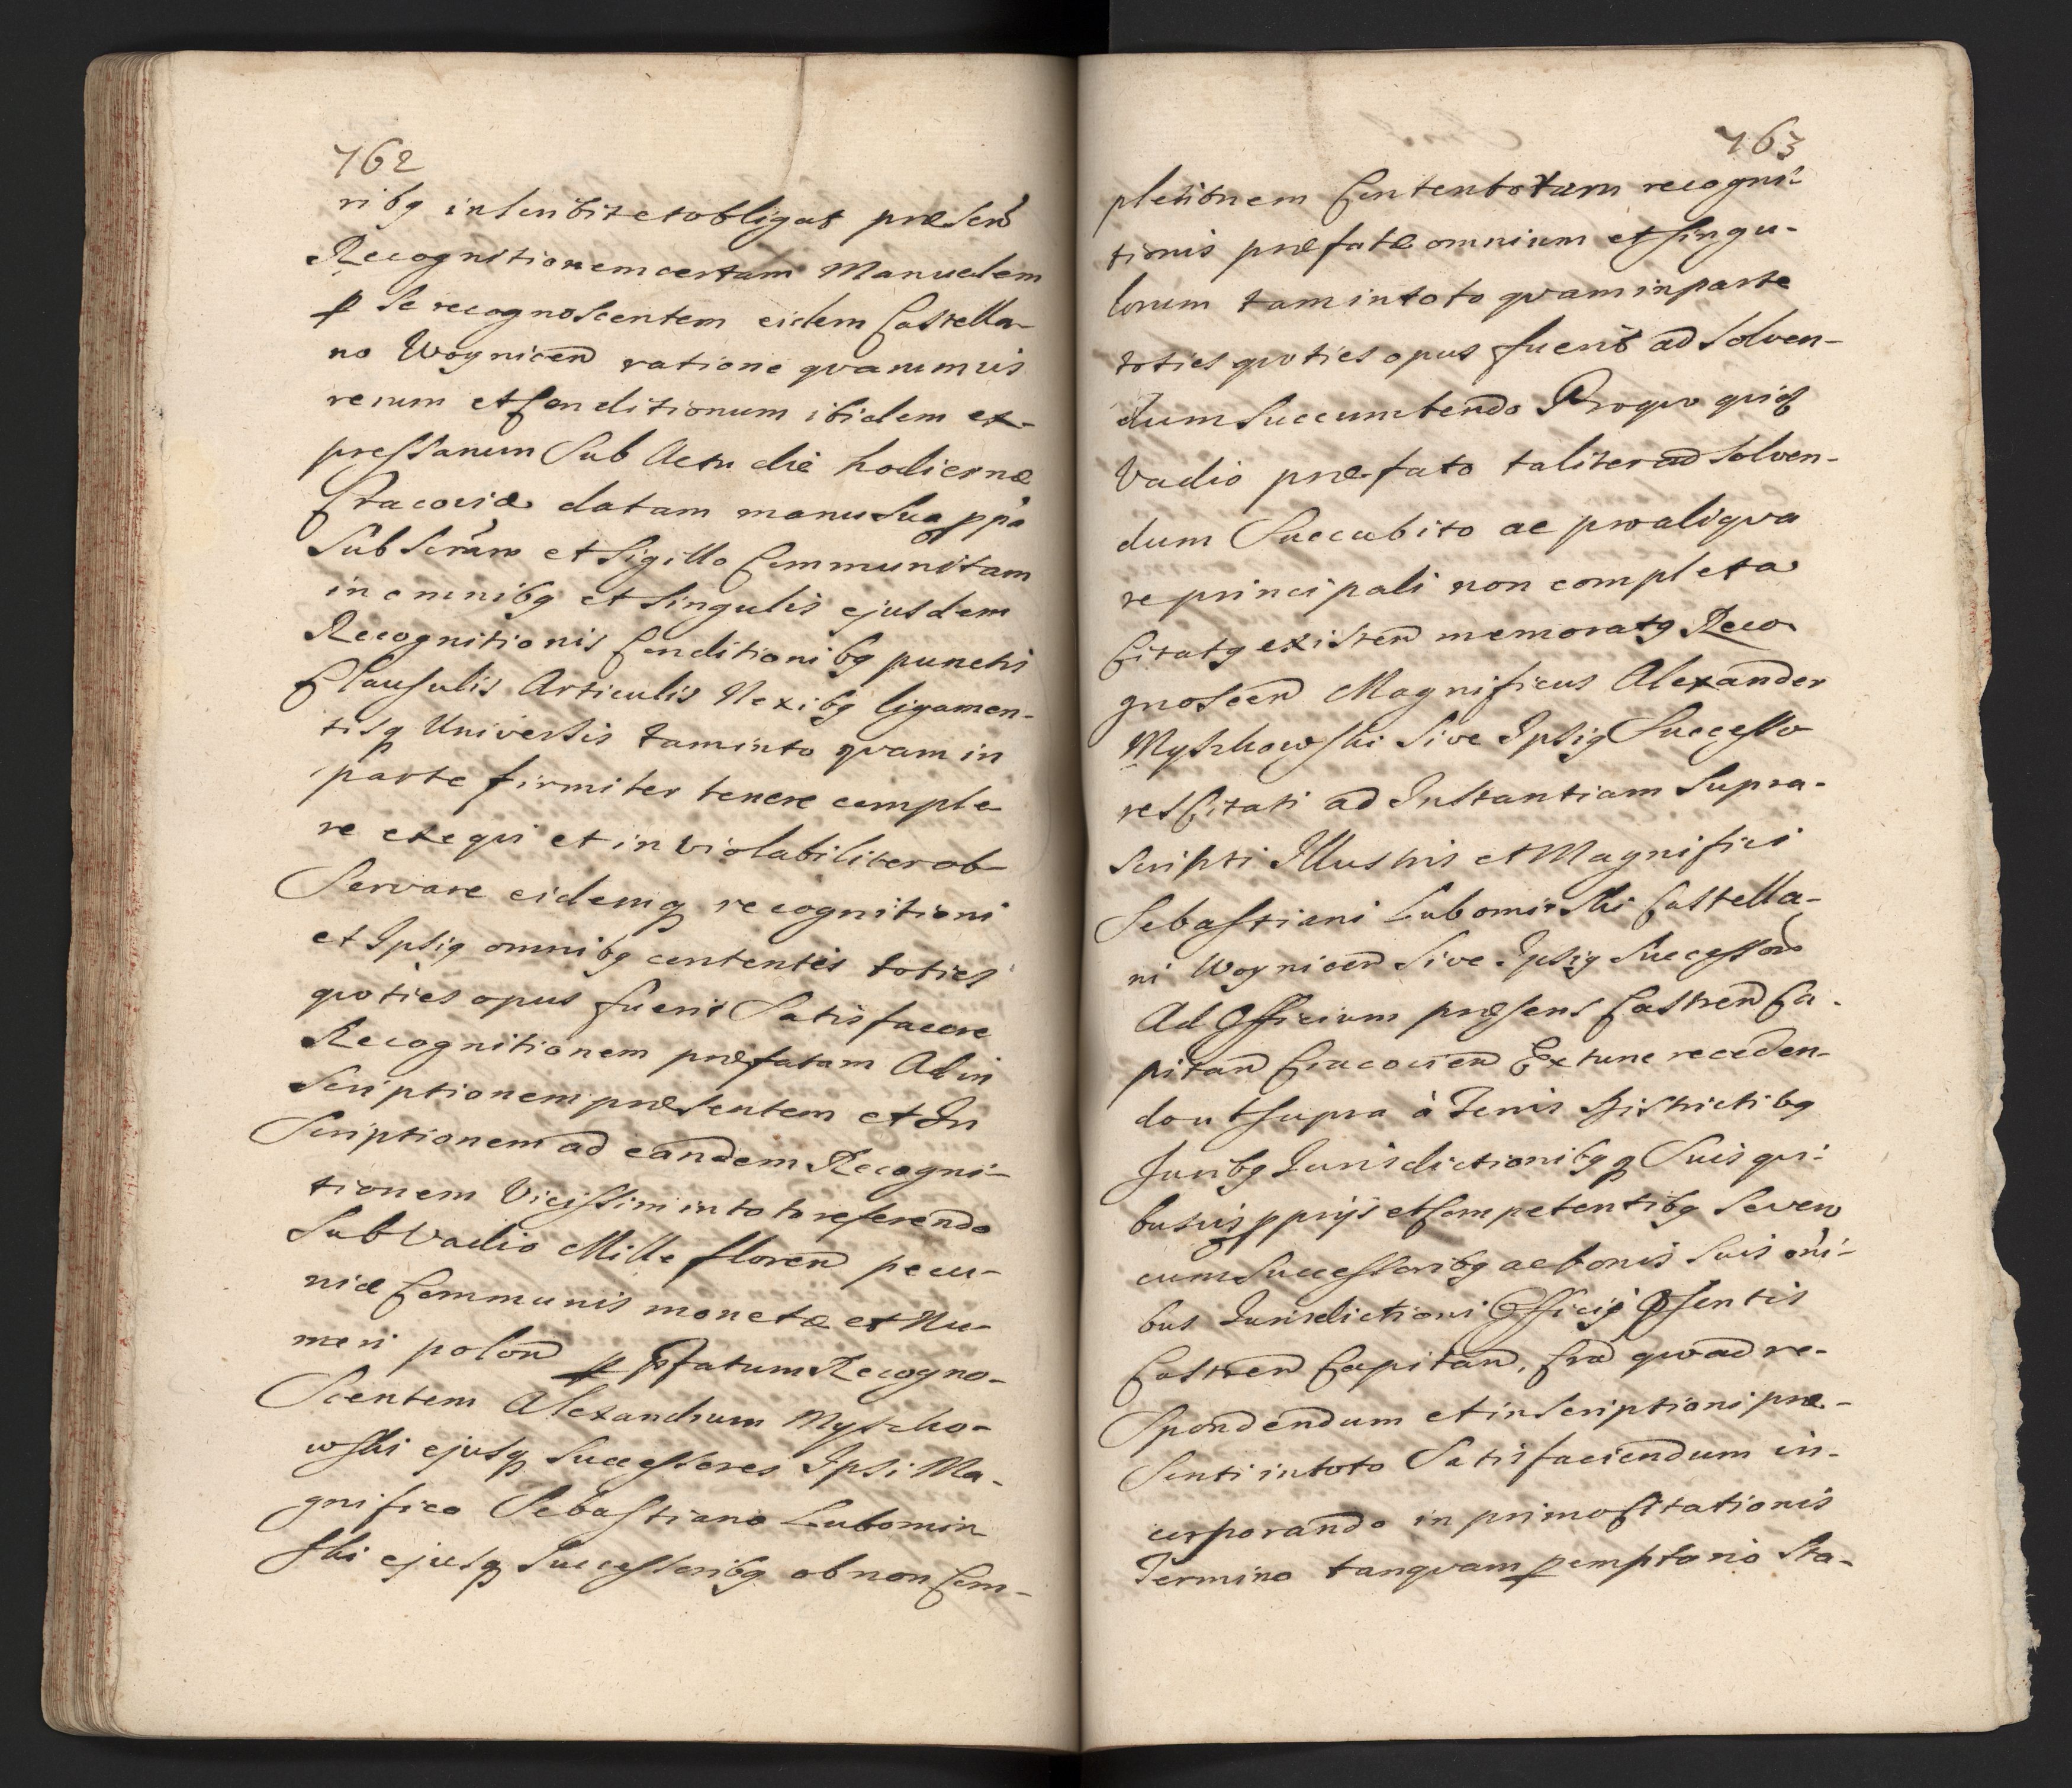 762
ribq inscribit et obligat præsen
Recognitionem certam Manualem
p se recognoscentem eidem Castella-
no Woynicen ratione quarumvis
rerum et Conditionum ibidem ex-
pressarum Sub Actu die hodiernæ
Cracoviæ datam manu sua ppa
Subscram et Sigillo Communitam
in omnibq et singulis ejusdem
Recognitionis Conditionibq punctis
Clausulis Articulis Nexibq ligamen-
tisq Universis tam in to quam in
parte firmiter tenere comple-
re exequi et inviolabiliter ob-
Servare eidemq recognitioni
et Ipsiq omnibq contentis toties
quoties opus fuerit Satisfacere
Recognitionem præfatam Ad in
scriptionem præsentem et In
Scriptionem ad eandem Recogni-
tionem Vicissim in toto referendo
Sub Vadio Mille floren pecu-
niæ Communis monetæ et Nu-
meri polon p Pfatum Recogno-
Scentem Alexandrum Myszko-
wski ejusq Successores Ipsi Ma-
gnifico Sebastiano Lubomir
ski ejusq Successoribq ob non Com-
763
pletionem Contentorum recogni-
tionis præfatæ omnium et singu-
lorum tam in toto quam in parte
toties quoties opus fuerit ad Solven-
dum Succumbendo Pro quo quid
Vadio præfato taliter ad Solven-
dum Succubito ac pro aliqua
re principali non completa
Citatq existen memoratq Reco
gnoscen Magnificus Alexander
Myszkowski Sive Ipsiq Successo
res Citati ad Instantiam Supra-
scripti Illustris et Magnifici
Sebastiani Lubomirski Castella-
ni Woynicen Sive Ipsiq Successor
Ad Officium præsens Castren Ca-
pitan Cracovien Ex tunc receden-
do ut supra à Terris Districtibq
Juribq Jurisdictionibqq Suis qui-
busvis pprijs et Competentibq Seven
cum Successoribq ac bonis Suis oni-
bus Jurisdictioni Officij Psentis
Castren Capitan, Cra quo ad re-
Spondendum et inscriptioni præ-
Senti in toto Satisfaciendum in-
corporando in primo Citationis
Termino tanquam pemptorio Sta-